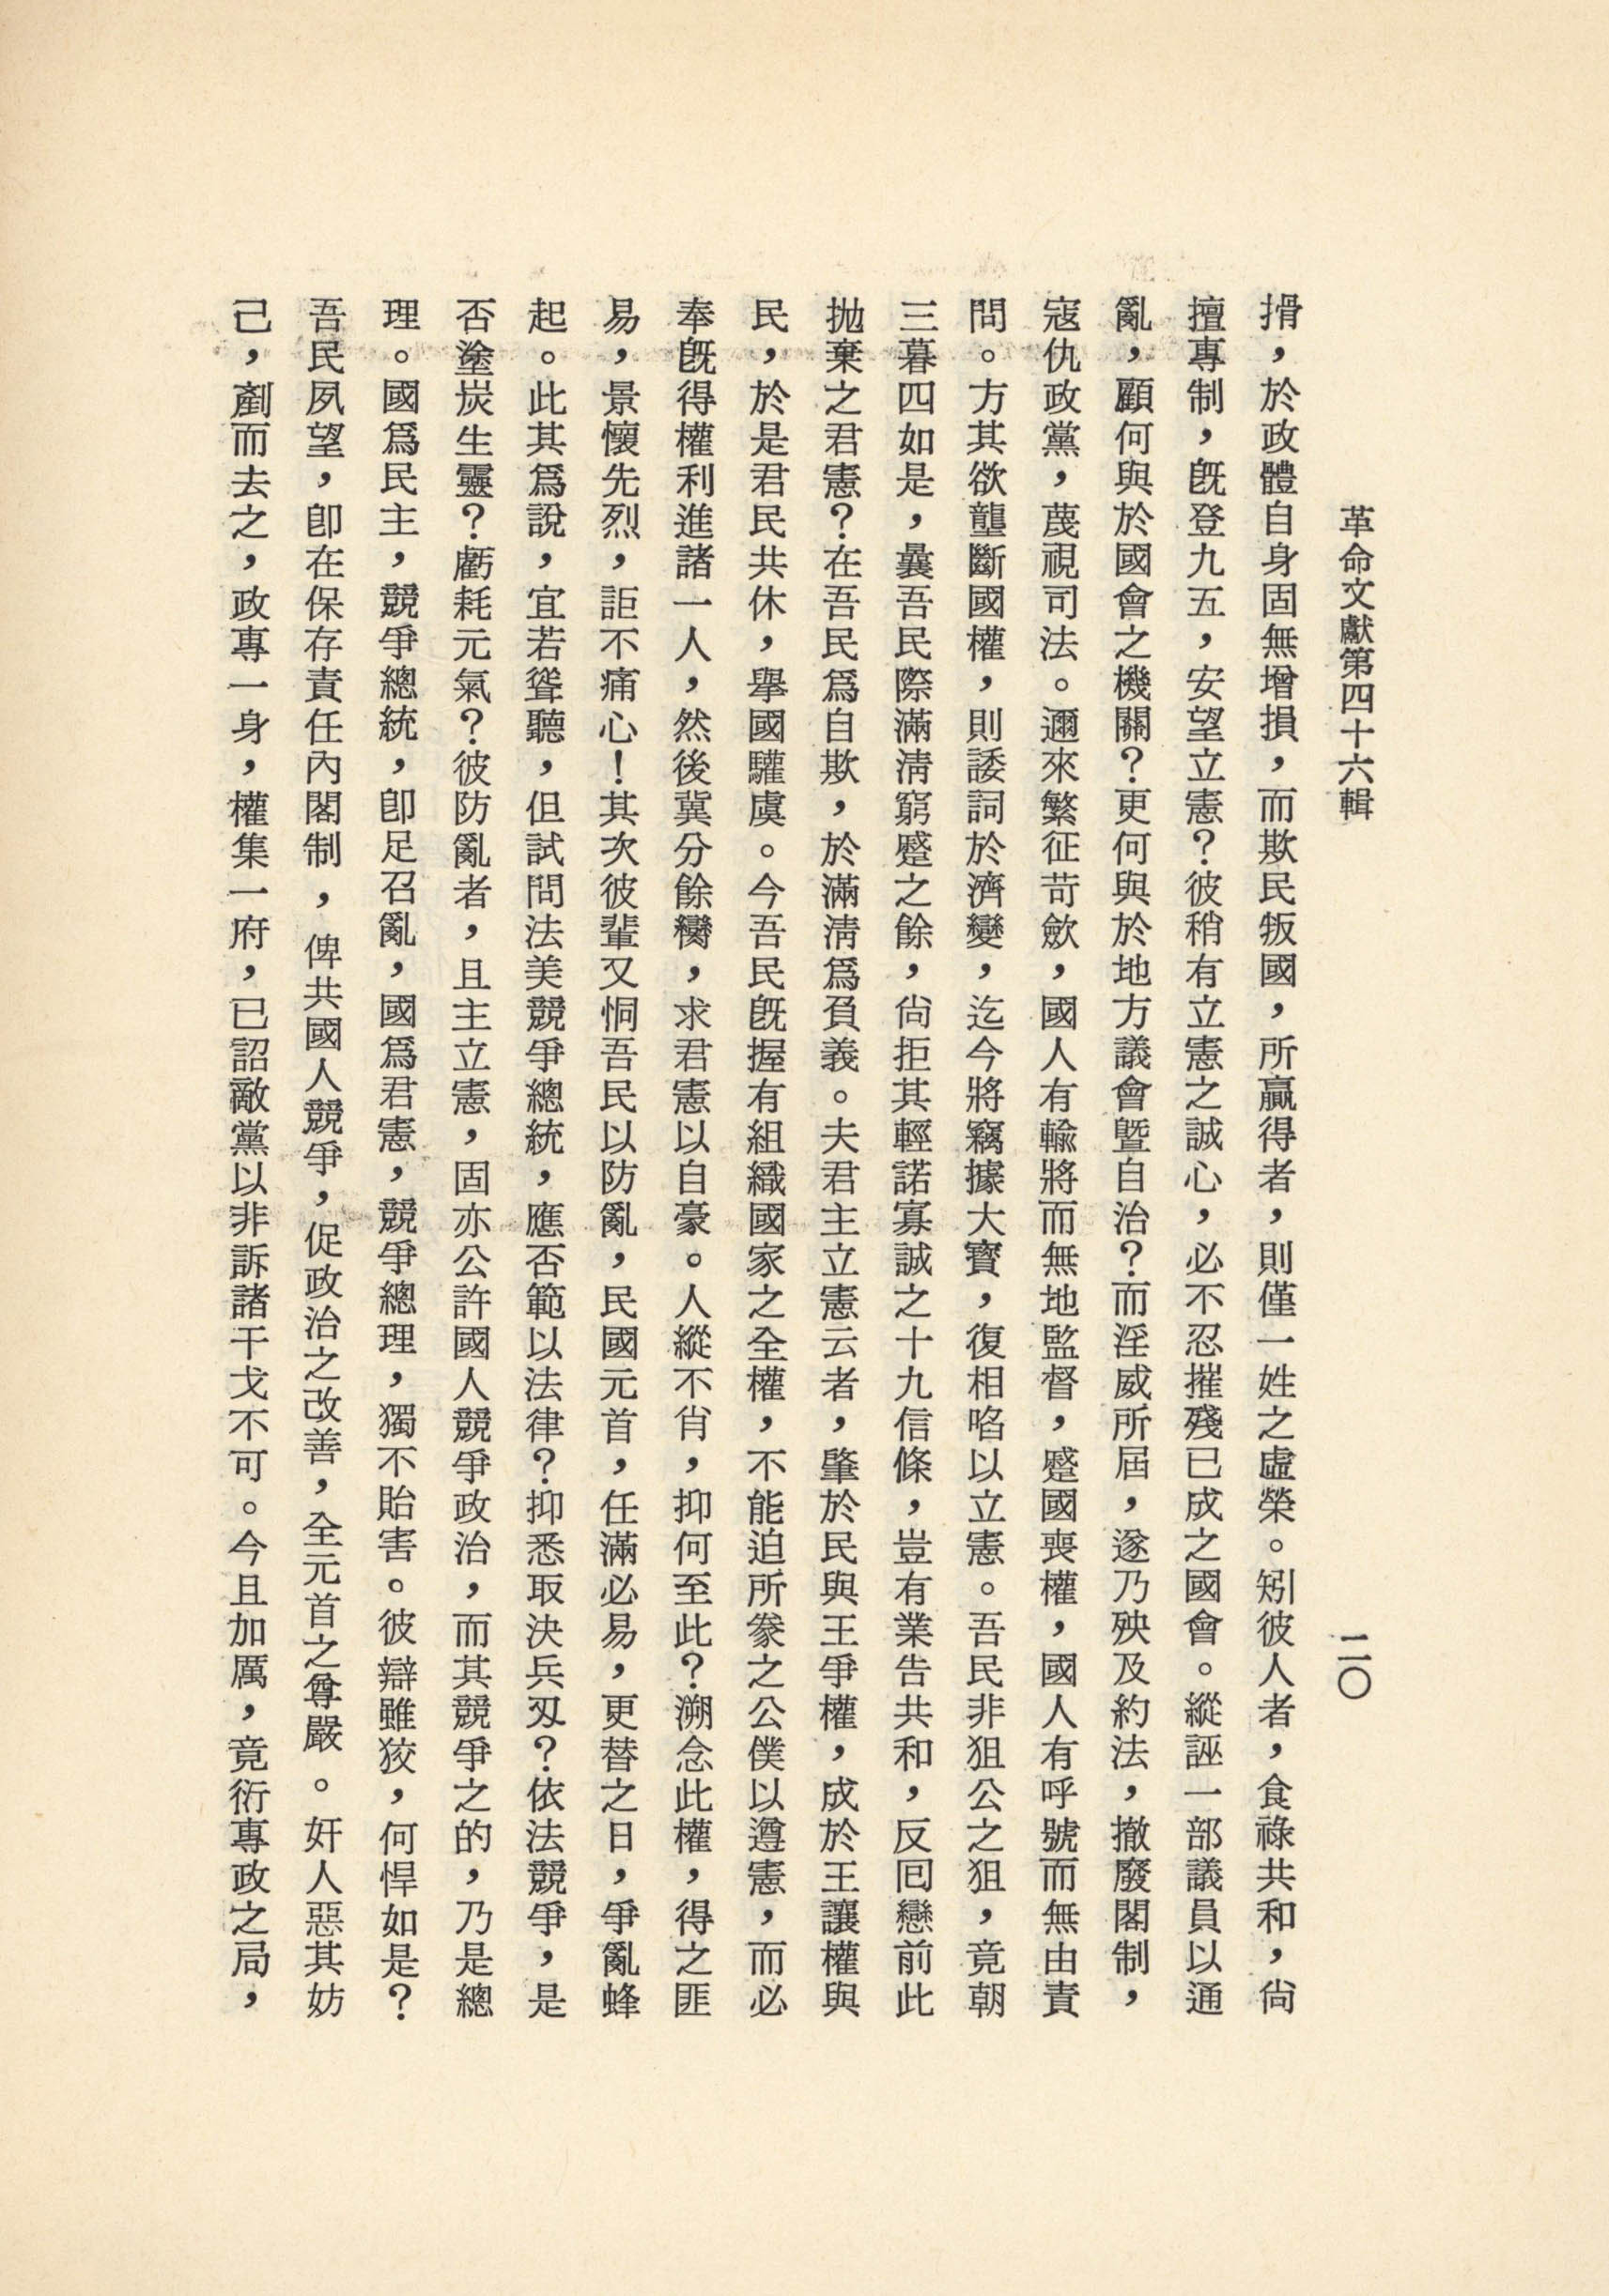 革命文獻第四十六輯
二〇
搰，於政體自身固無增損，而欺民叛國，所贏得者，則僅一姓之虛榮。矧彼人者，食祿共和，尙
擅專制，旣登九五，安望立憲？彼稍有立憲之誠心，必不忍摧殘已成之國會。縱誣一部議員以通
亂，顧何與於國會之機關？更何與於地方議會曁自治？而淫威所屆，遂乃殃及約法，撤廢閣制，
寇仇政黨，蔑視司法。邇來繁征苛歛，國人有輸將而無地監督，蹙國喪權，國人有呼號而無由責
問。方其欲壟斷國權，則諉詞於濟變，迄今將竊據大寶，復相啗以立憲。吾民非狙公之狙，竟朝
三暮四如是，曩吾民際滿淸窮蹙之餘，尙拒其輕諾寡誠之十九信條，豈有業告共和，反囘戀前此
拋棄之君憲？在吾民爲自欺，於滿淸爲負義。夫君主立憲云者，肇於民與王爭權，成於王讓權與
民，於是君民共休，舉國驩虞。今吾民旣握有組織國家之全權，不能迫所豢之公僕以遵憲，而必
奉旣得權利進諸一人，然後冀分餘臠，求君憲以自豪。人縱不肖，抑何至此？溯念此權，得之匪
易，景懷先烈，詎不痛心！其次彼輩又恫吾民以防亂，民國元首，任滿必易，更替之日，爭亂蜂
起。此其爲說，宜若聳聽，但試問法美競爭總統，應否範以法律？抑悉取決兵刄？依法競爭，是
否塗炭生靈？虧耗元氣？彼防亂者，且主立憲，固亦公許國人競爭政治，而其競爭之的，乃是總
理。國爲民主，競爭總統，卽足召亂，國爲君憲，競爭總理，獨不貽害。彼辯雖狡，何悍如是？
吾民夙望，卽在保存責任內閣制，俾共國人競爭，促政治之改善，全元首之尊嚴。奸人惡其妨
己，劉而去之，政專一身，權集一府，已詔敵黨以非訴諸干戈不可。今且加厲，竟衍專政之局，